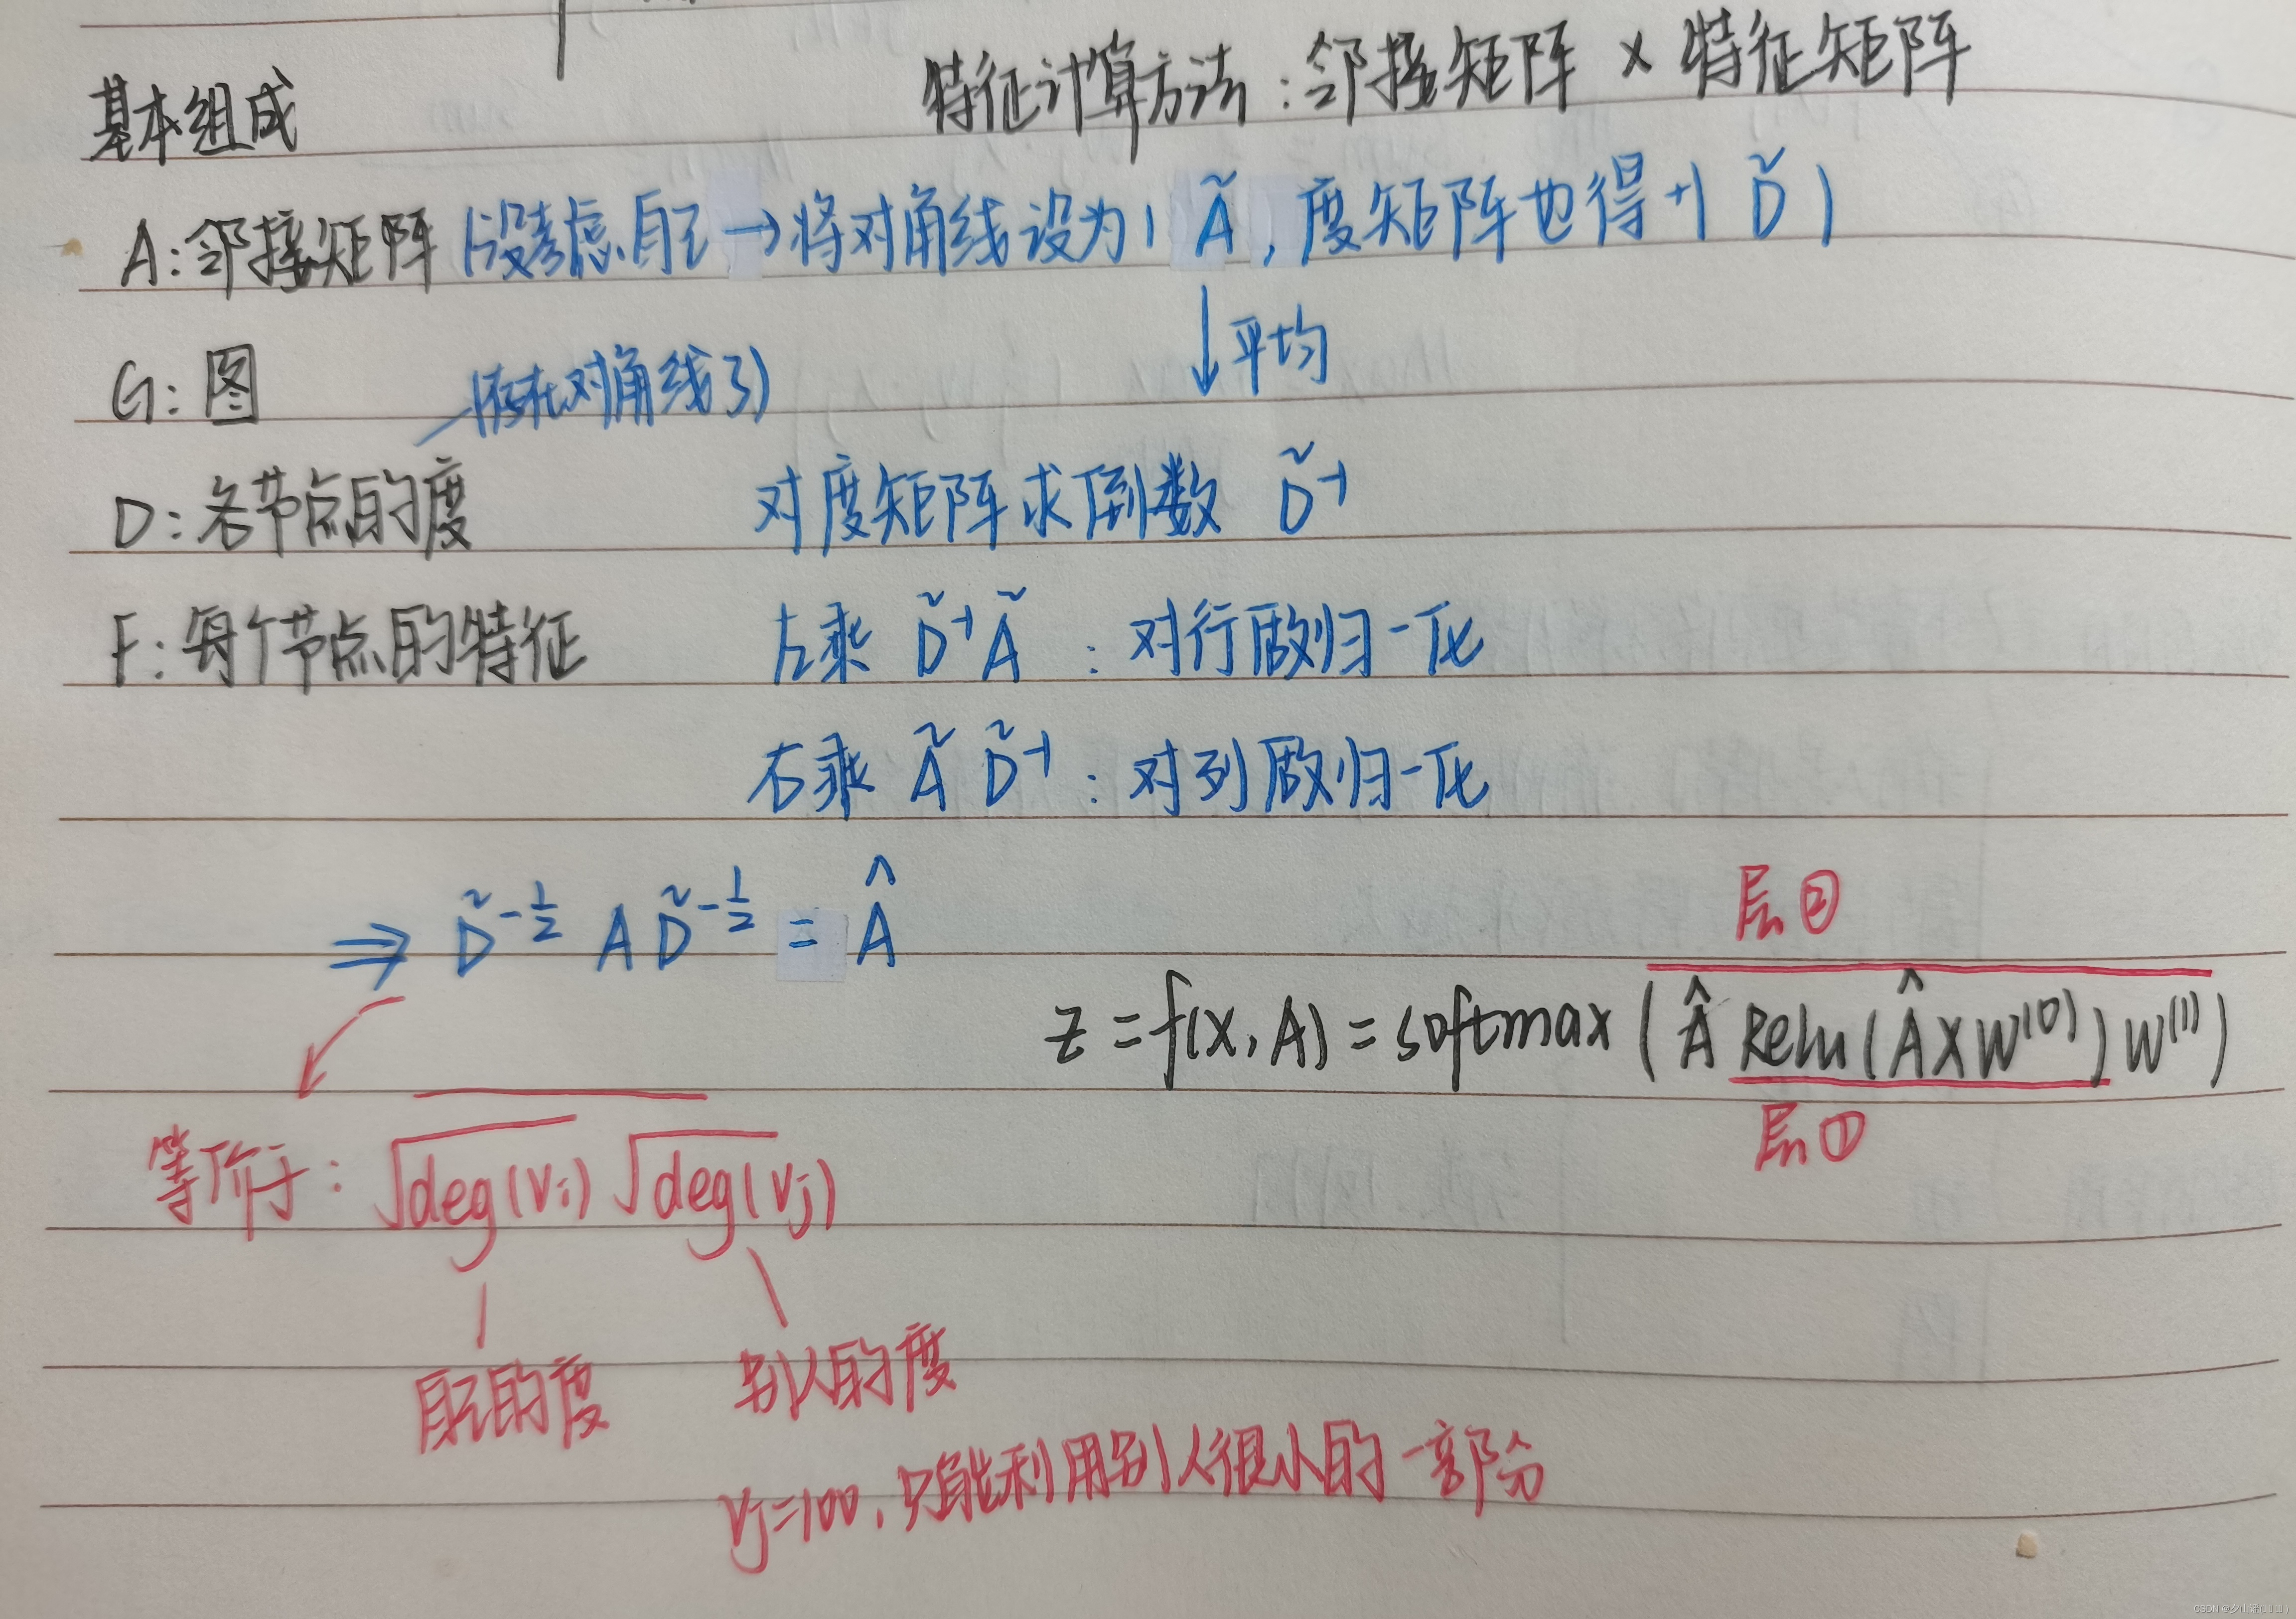 特征计算方法：邻接矩阵 × 特征矩阵
基本组成
A：邻接矩阵（没考虑自己 → 将对角线设为1 Ã，度矩阵也得+1 D̃）
↓平均
G：图
（存在对角线了）
D：各节点的度
对度矩阵求倒数 D̃⁻¹
F：每个节点的特征
左乘 D̃⁻¹Ã：对行做归一化
右乘 ÃD̃⁻¹：对列做归一化
⇒ D̃^{-1/2} A D̃^{-1/2} = Â
层②
z = f(x, A) = softmax(Â Relu(ÂXW⁽⁰⁾)W⁽¹⁾)
层①
等价于：√deg(vi) √deg(vj)
自己的度
别人的度
vj=100，只能利用别人很小的一部分